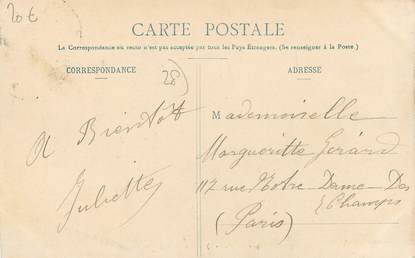 20€
CARTE POSTALE
La Correspondance au recto n'est pas acceptée par tous les Pays Étrangers. (Se renseigner à la Poste.)
CORRESPONDANCE
28
ADRESSE
A Bientôt
Juliette
Mademoiselle
Margueritte Gérard
117 rue Notre Dame-Des
Champs
(Paris)